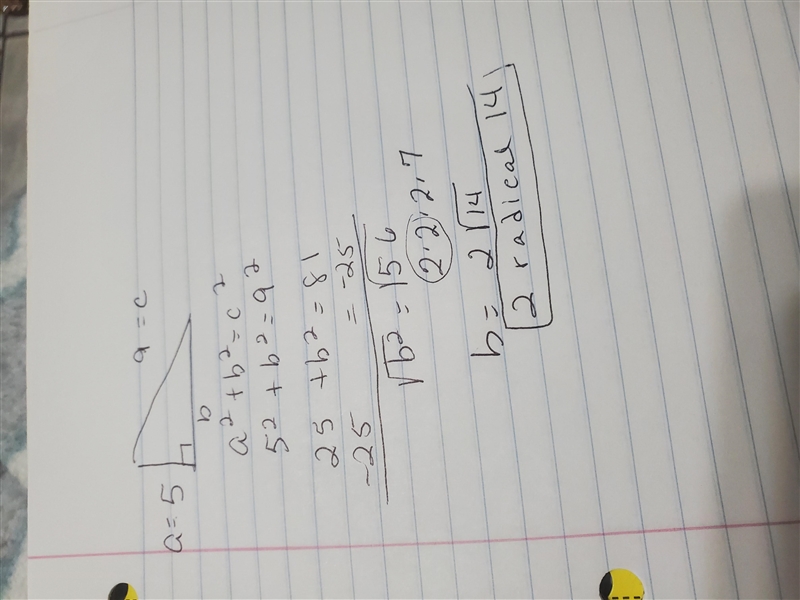 9 = c
a = 5
b
a² + b² = c²
5² + b² = 9²
25 + b² = 81
-25 = -25
√b² = √56
2·2·2·7
b = 2√14
2 radical 14